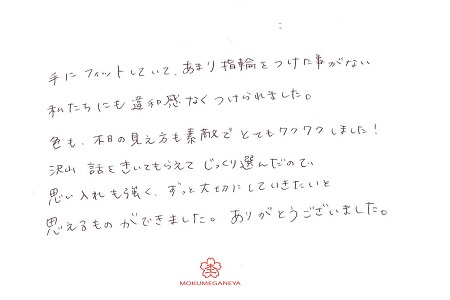 手にフィットしていて、あまり指輪をつけた事がない
私たちにも違和感なくつけられました。
色も、木目の見え方も素敵でとてもワクワクしました!
沢山 話をきいてもらえて じっくり選んだので、
思い入れも強く、ずっと大切にしていきたいと
思えるものができました。ありがとうございました。
MOKUMEGANEYA